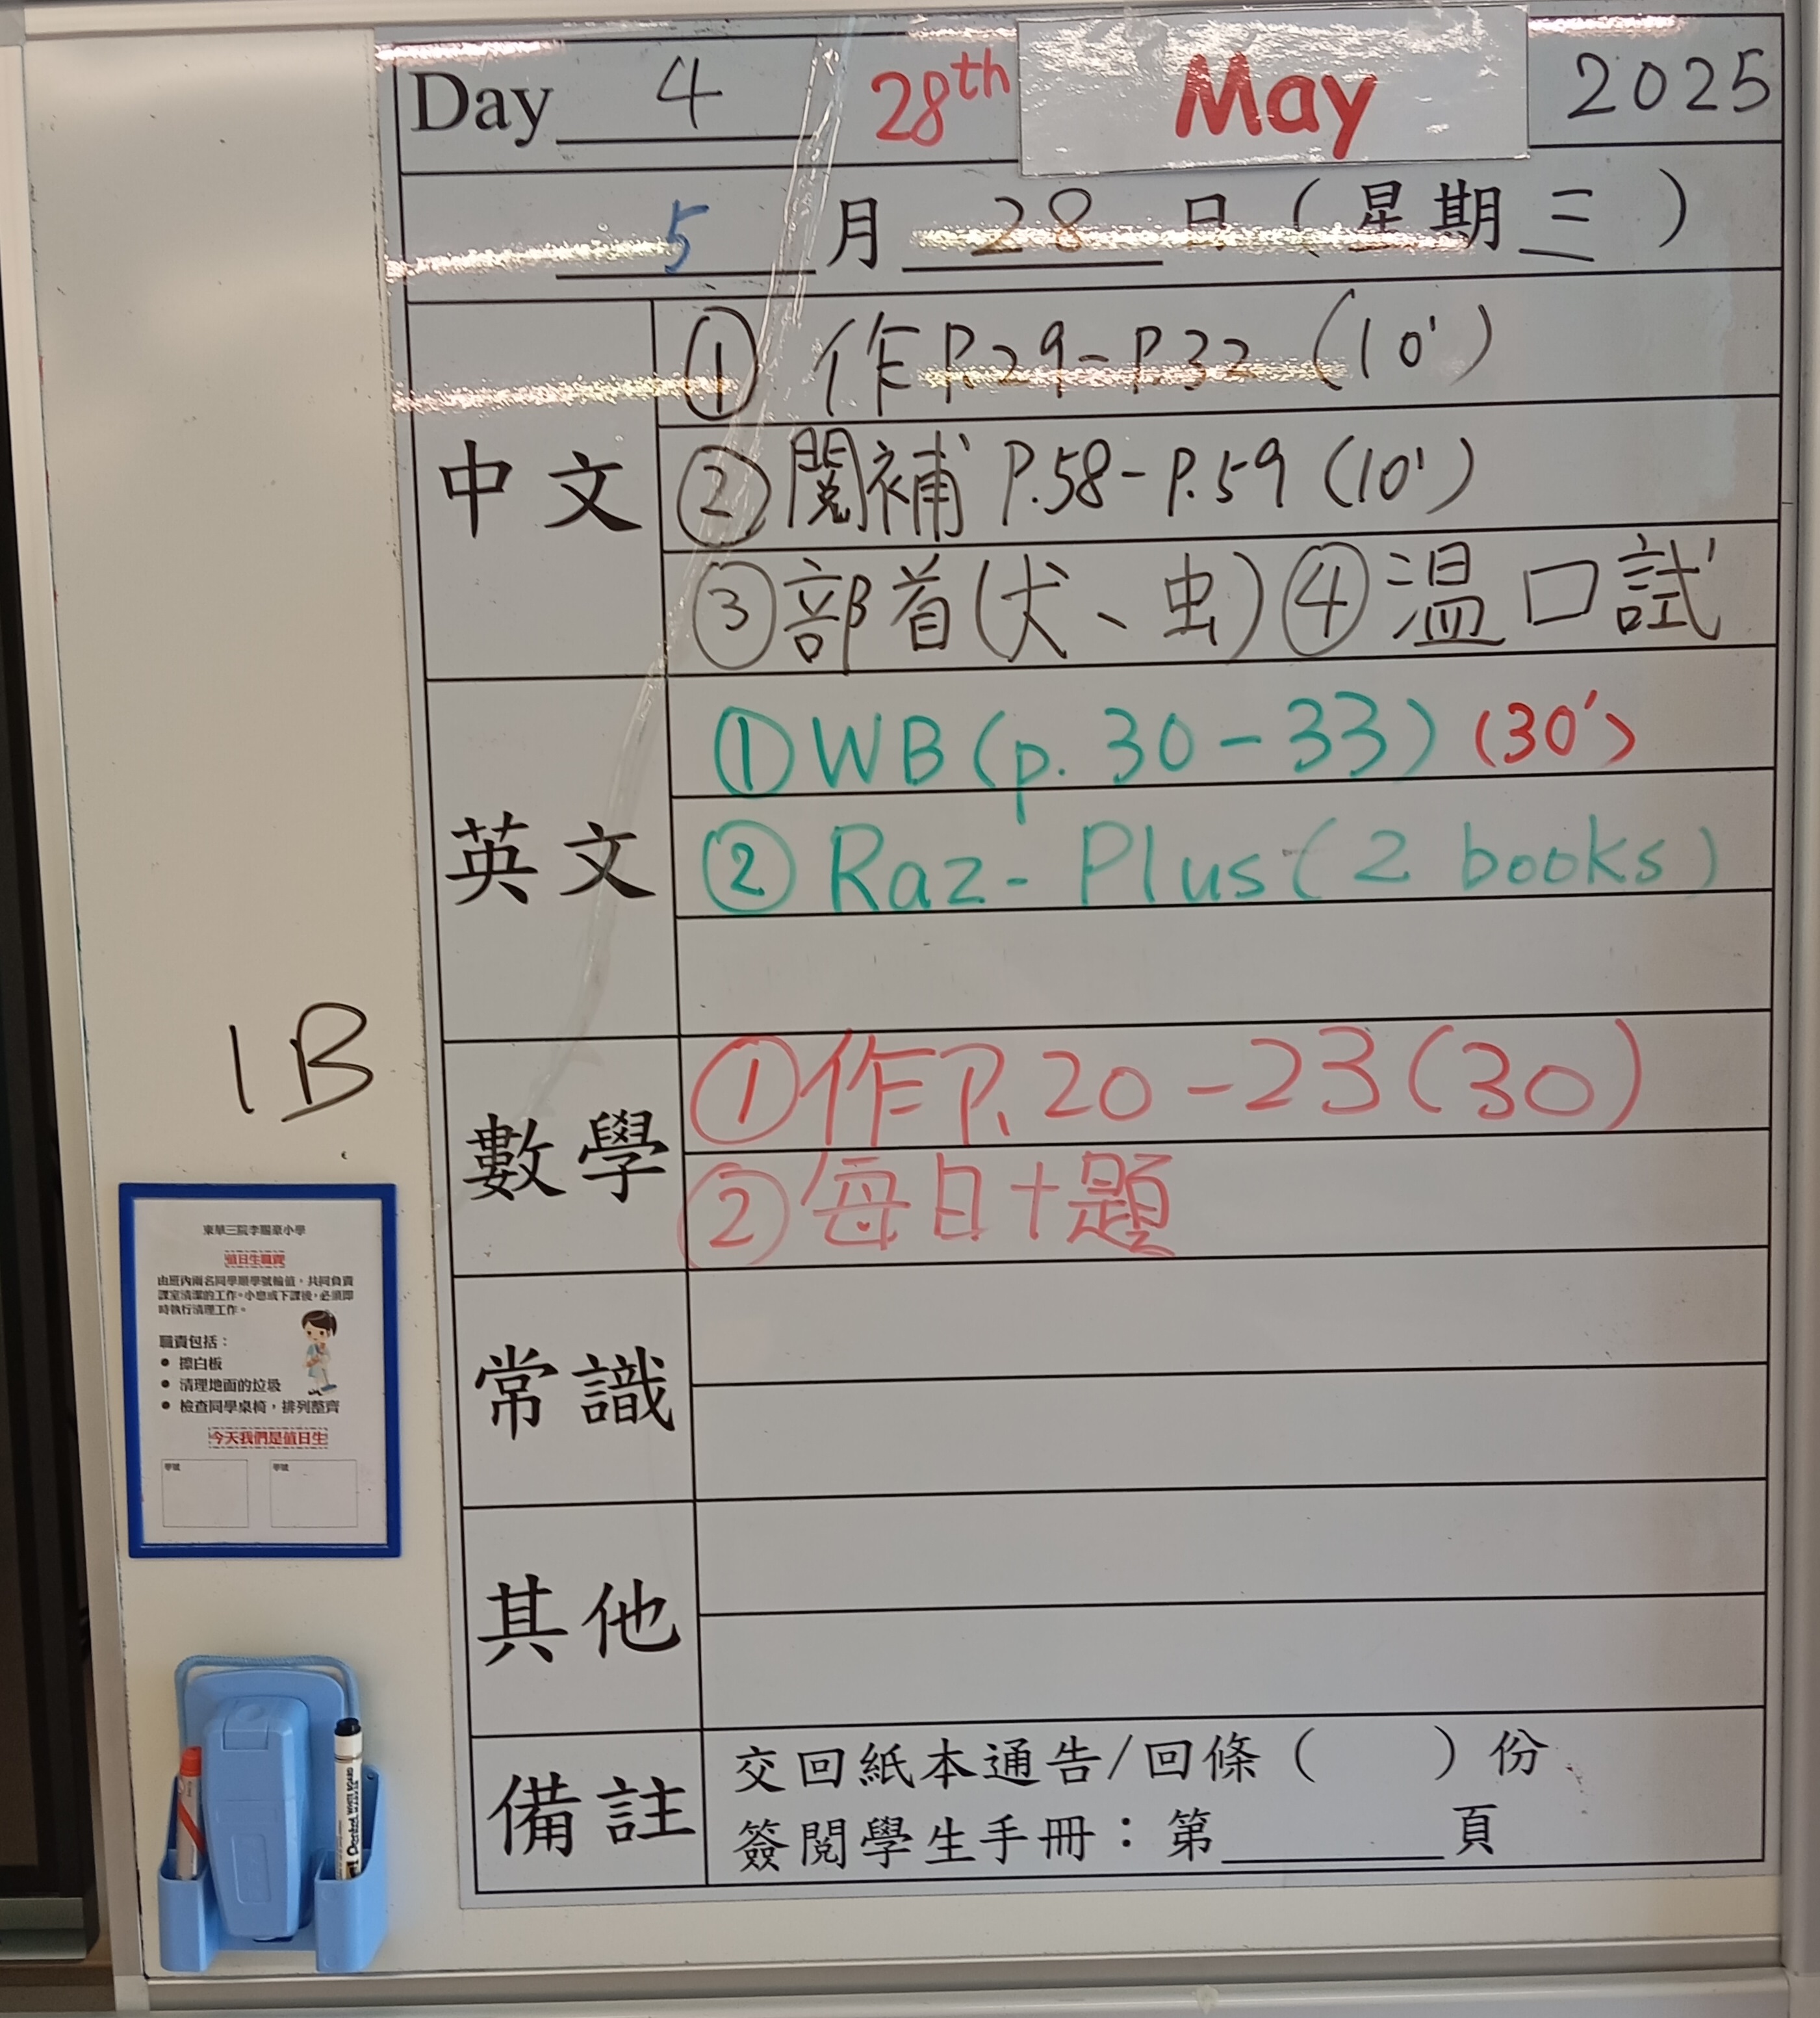 Day 4 28th May 2025
5月28日(星期三)
中文
① 作P.29-P.32 (10')
② 閱補 P.58-P.59 (10')
③部首(犬、虫)④溫口試
英文
①WB(p. 30-33) (30')
② Raz-Plus(2 books)
數學
①作P.20-23(30)
②每日十題
常識
其他
備註
交回紙本通告/回條( )份
簽閱學生手冊:第______頁
1B
東華三院李賜豪小學
值日生職責
由班內兩名同學順學號輪值,共同負責
課室清潔的工作。小息或下課後,必須即
時執行清理工作。
職責包括:
• 擦白板
• 清理地面的垃圾
• 檢查同學桌椅,排列整齊
今天我們是值日生
學號 學號